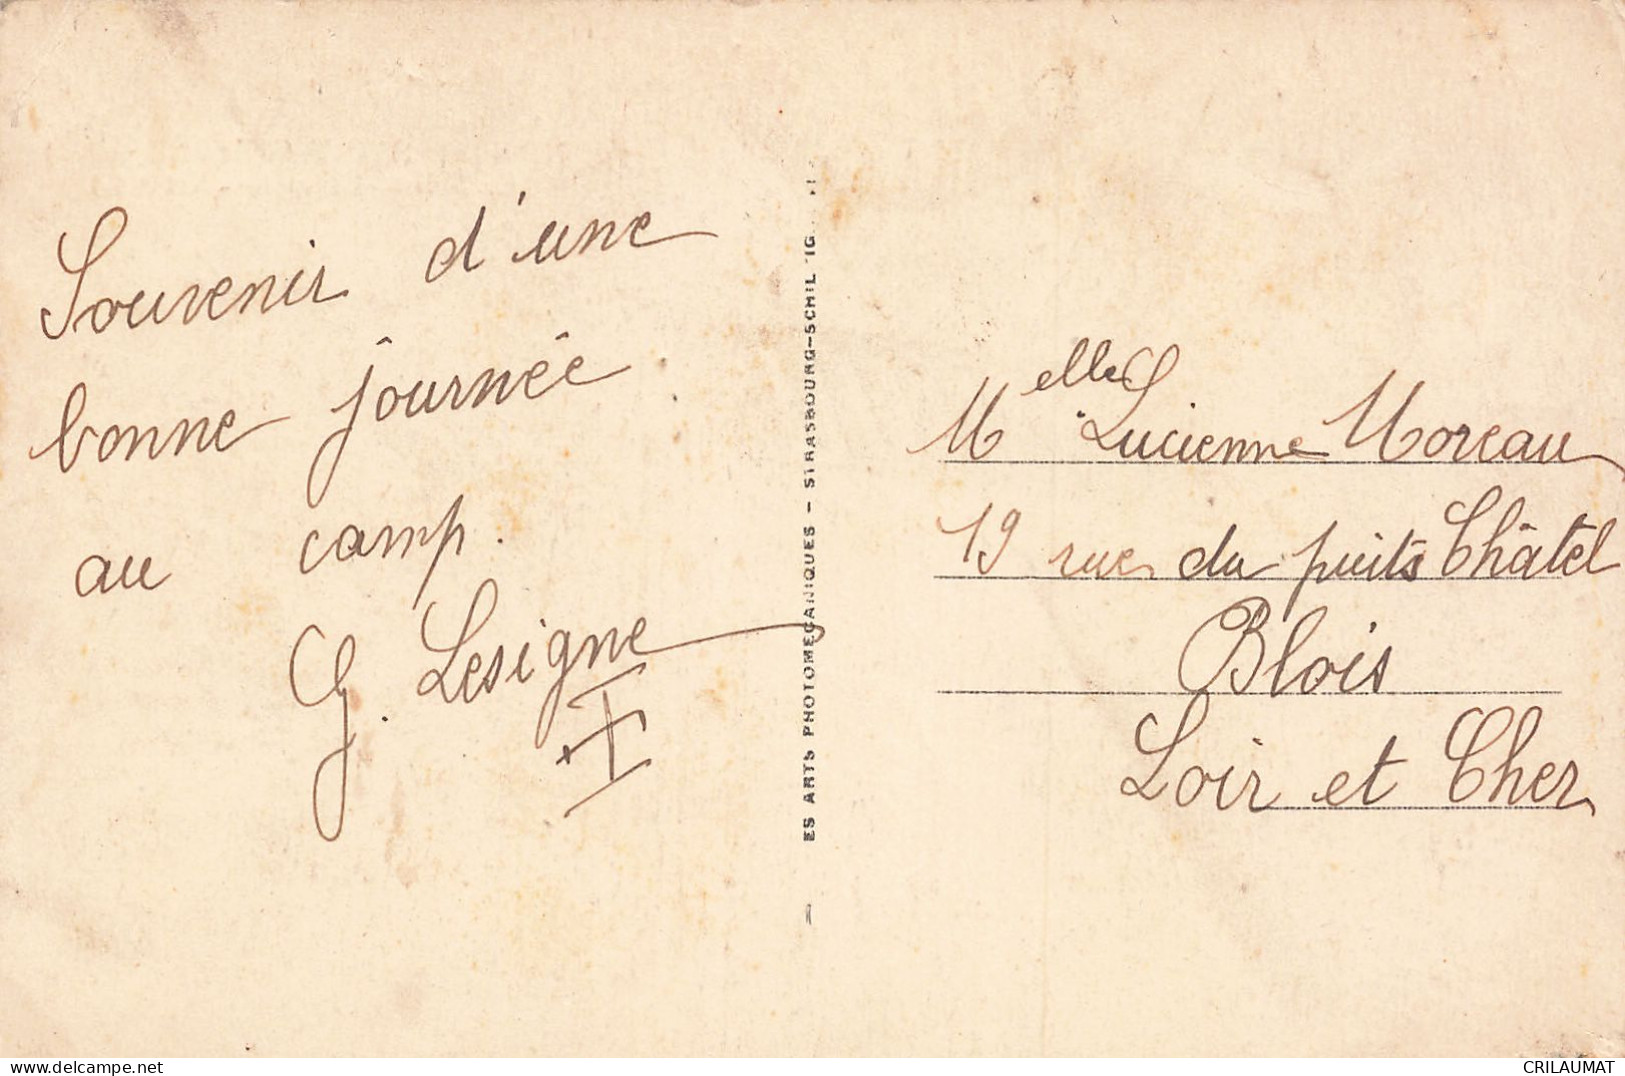 Souvenir d'une
bonne journée
au camp.
G. Lesigne
ES ARTS PHOTOMECANIQUES - STRASBOURG-SCHIL IG.
Melle Lucienne Moreau
19 rue du puits Châtel
Blois
Loir et Cher
www.delcampe.net
CRILAUMAT